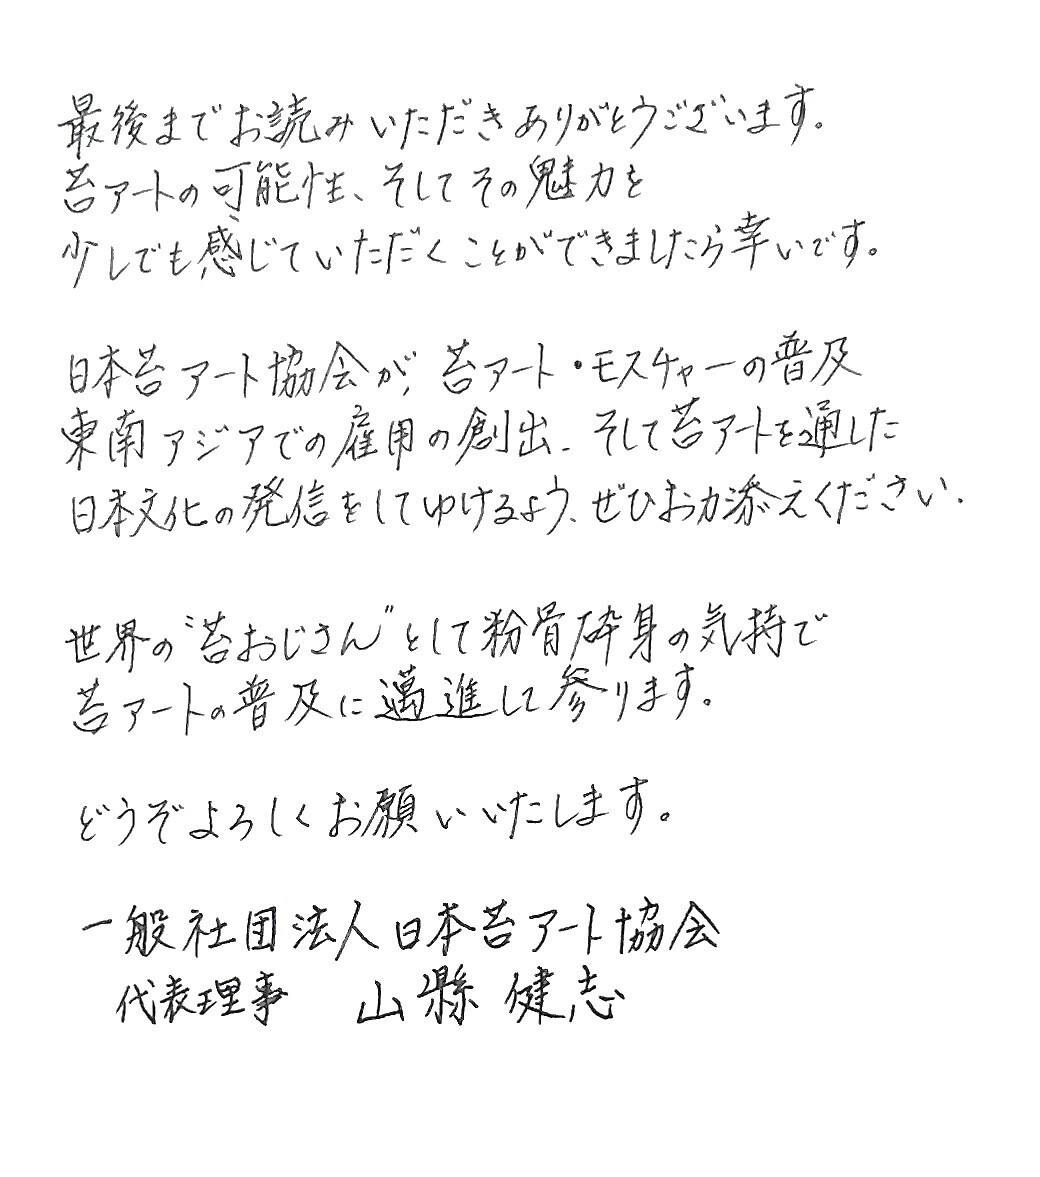 最後までお読みいただきありがとうございます。
苔アートの可能性、そしてその魅力を
少しでも感じていただくことができましたら幸いです。
日本苔アート協会が、苔アート・モスチャーの普及
東南アジアでの雇用の創出、そして苔アートを通した
日本文化の発信をしてゆけるよう、ぜひお力添えください.
世界の“苔おじさん”として粉骨砕身の気持で
苔アートの普及に邁進して参ります。
どうぞよろしくお願いいたします。
一般社団法人日本苔アート協会
代表理事 山縣 健志